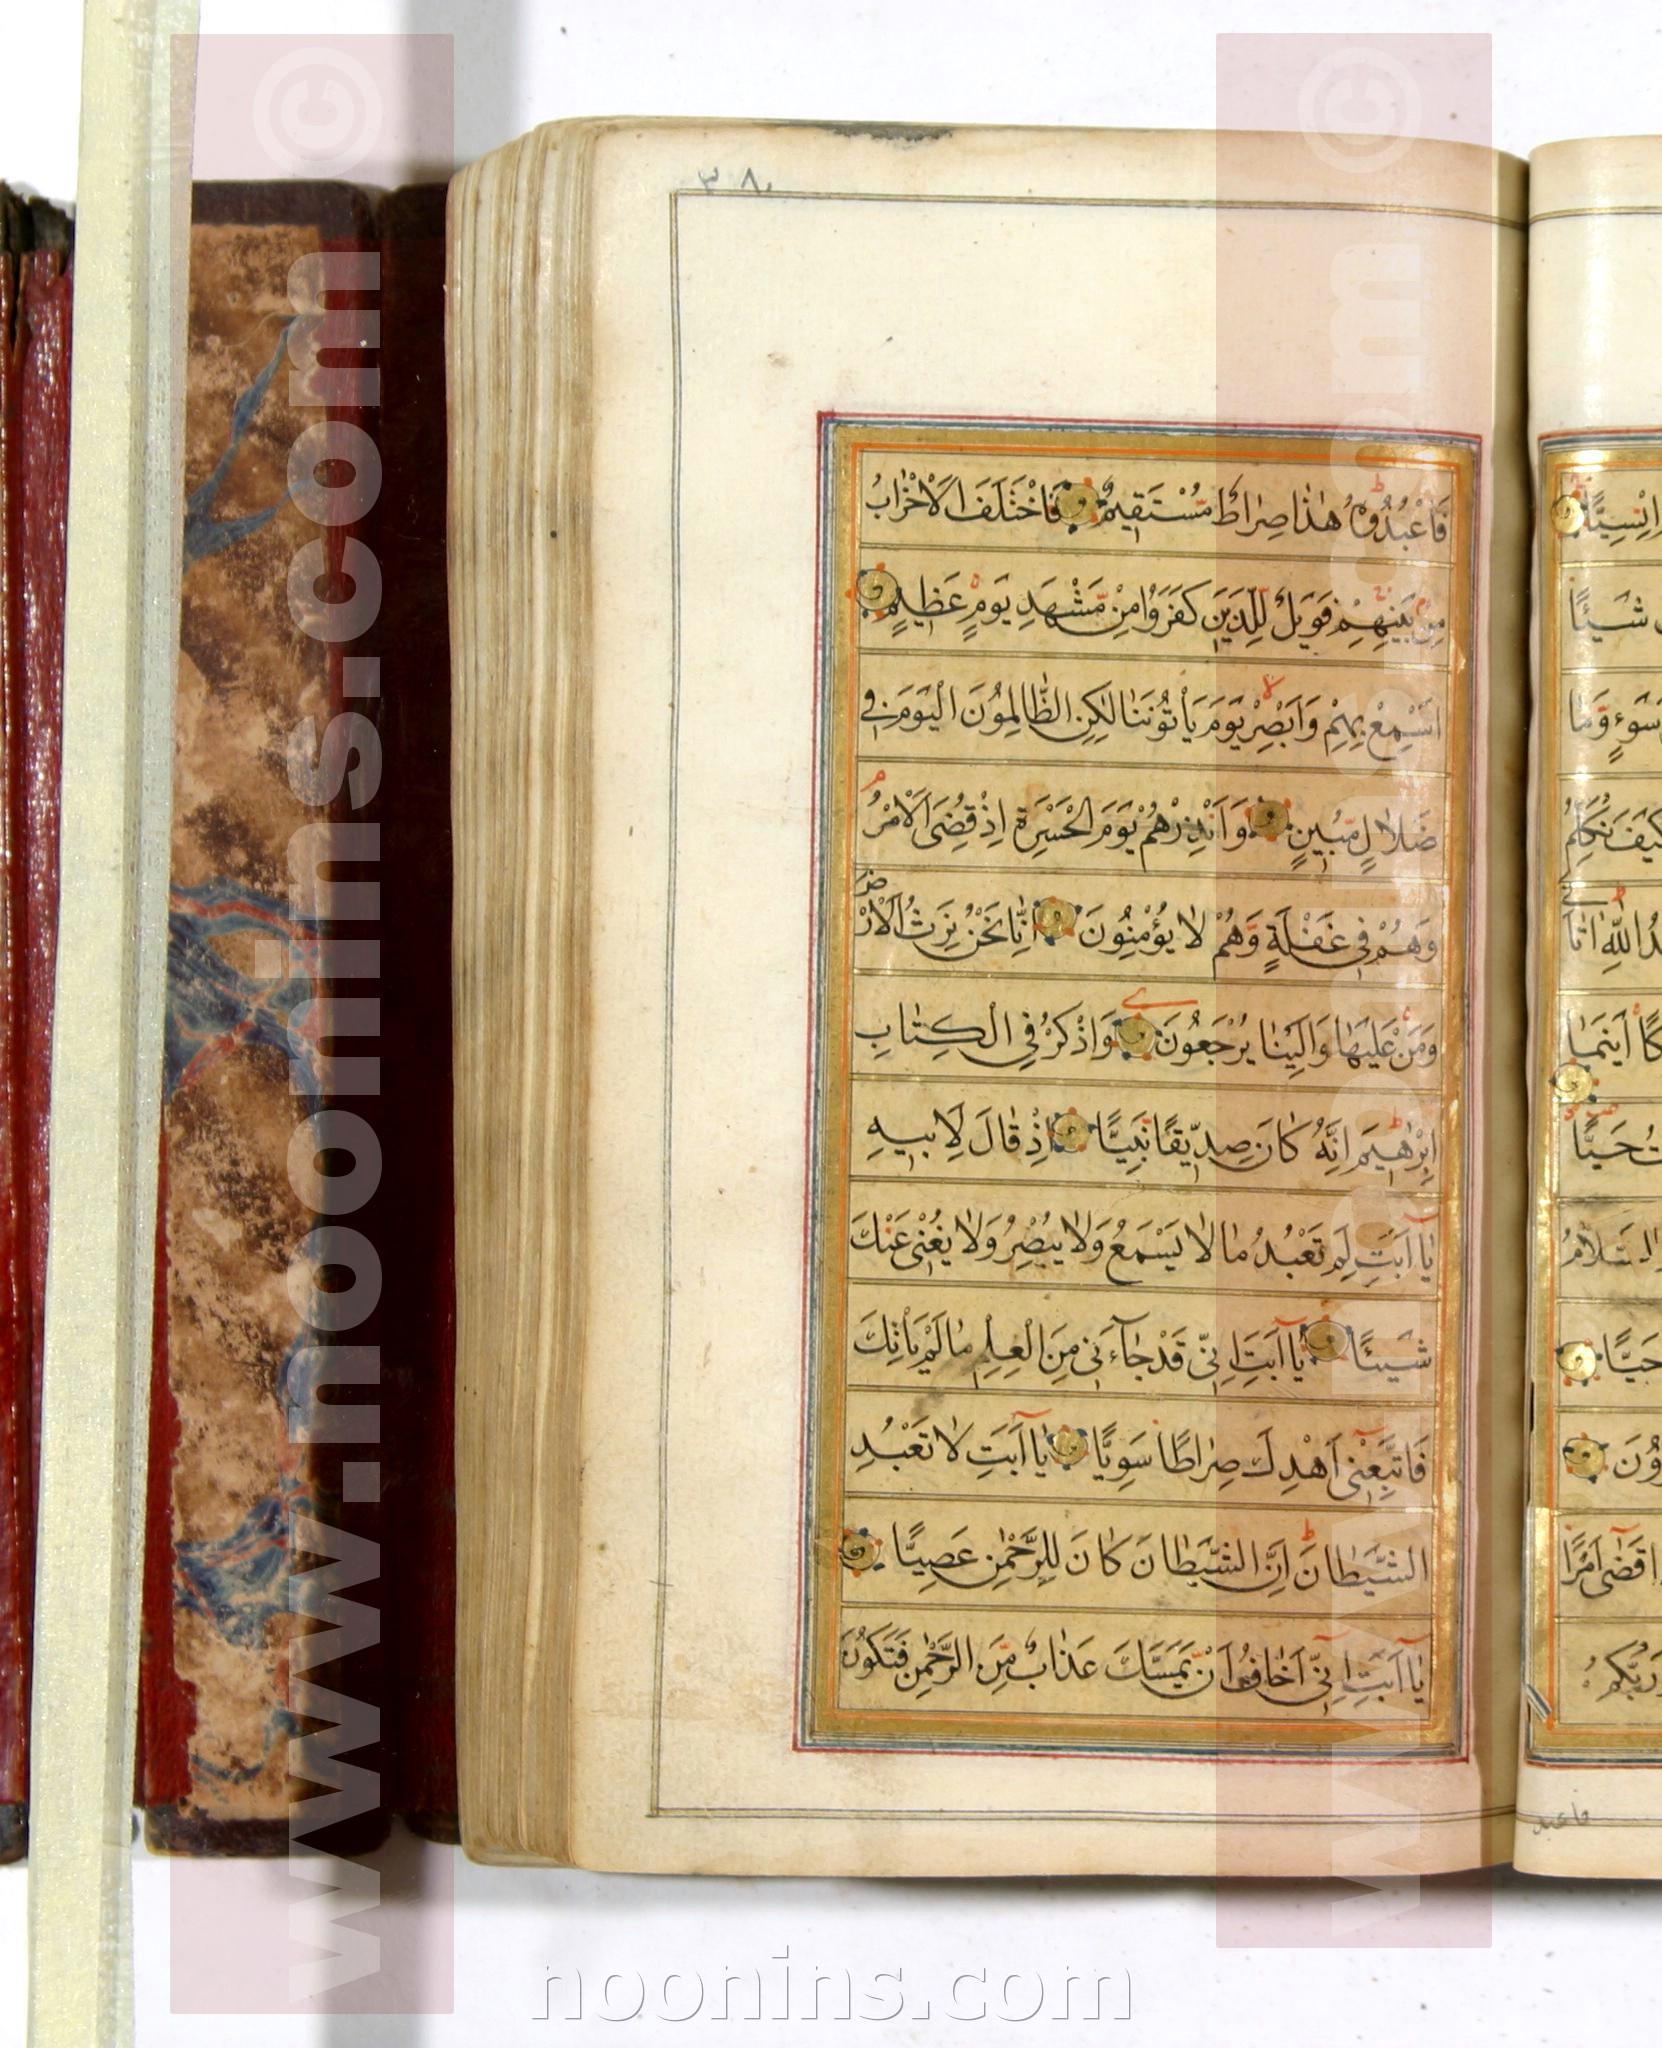 ۳۸۰
فَاعْبُدُوهُ هٰذَا صِرَاطٌ مُّسْتَقِيمٌ فَاخْتَلَفَ الْاَحْزَابُ
مِنْ بَيْنِهِمْ فَوَيْلٌ لِلَّذِينَ كَفَرُوا مِنْ مَّشْهَدِ يَوْمٍ عَظِيمٍ
اَسْمِعْ بِهِمْ وَاَبْصِرْ يَوْمَ يَأْتُونَنَا لٰكِنِ الظَّالِمُونَ الْيَوْمَ فِي
ضَلَالٍ مُّبِينٍ وَاَنْذِرْهُمْ يَوْمَ الْحَسْرَةِ اِذْ قُضِيَ الْاَمْرُ
وَهُمْ فِي غَفْلَةٍ وَّهُمْ لَا يُؤْمِنُونَ اِنَّا نَحْنُ نَرِثُ الْاَرْضَ
وَمَنْ عَلَيْهَا وَاِلَيْنَا يُرْجَعُونَ وَاذْكُرْ فِي الْكِتَابِ
اِبْرٰهِيمَ اِنَّهُ كَانَ صِدِّيقًا نَّبِيًّا اِذْ قَالَ لِاَبِيهِ
يَا اَبَتِ لِمَ تَعْبُدُ مَا لَا يَسْمَعُ وَلَا يُبْصِرُ وَلَا يُغْنِي عَنْكَ
شَيْئًا يَا اَبَتِ اِنِّي قَدْ جَاءَنِي مِنَ الْعِلْمِ مَا لَمْ يَأْتِكَ
فَاتَّبِعْنِي اَهْدِكَ صِرَاطًا سَوِيًّا يَا اَبَتِ لَا تَعْبُدِ
الشَّيْطَانَ اِنَّ الشَّيْطَانَ كَانَ لِلرَّحْمٰنِ عَصِيًّا
يَا اَبَتِ اِنِّي اَخَافُ اَنْ يَّمَسَّكَ عَذَابٌ مِّنَ الرَّحْمٰنِ فَتَكُونَ
اِنْسِيًّا
شَيْئًا
سَوْءٍ وَّمَا
كَيْفَ نُكَلِّمُ
اللّٰهِ اٰتَا
اَيْنَمَا
حَيًّا
السَّلَامُ
حَيًّا
قَضٰى اَمْرًا
رَبُّكُمْ
فاعبد
www.noonins.com ©
www.noonins.com ©
noonins.com